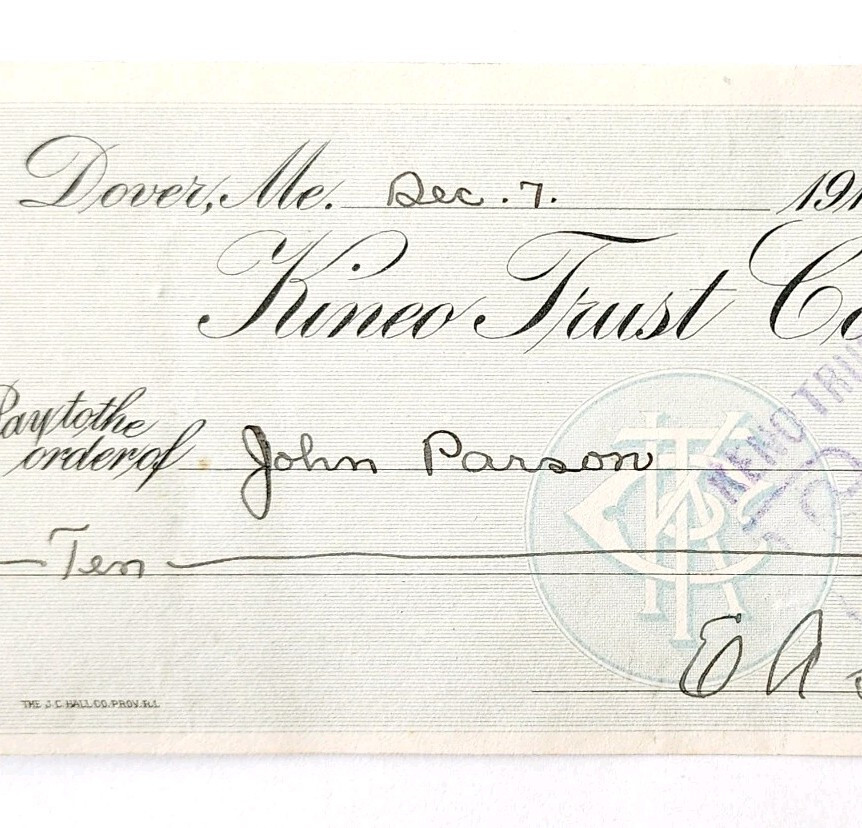 Dover, Me. Dec. 7. 191
Kineo Trust Co
Pay to the
order of John Parson
Ten
E A
THE J.C. HALL CO. PROV. R.I.